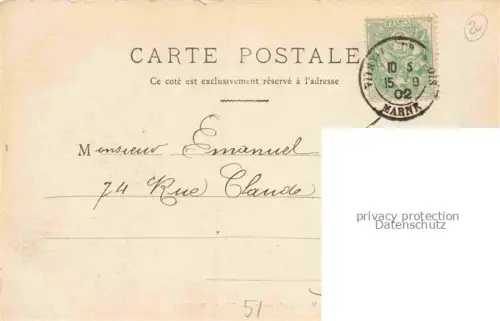 CARTE POSTALE
Ce coté est exclusivement réservé à l'adresse
10 S
15 9
02
MARNE
Monsieur Emanuel
74 Rue Claude
privacy protection
Datenschutz
51